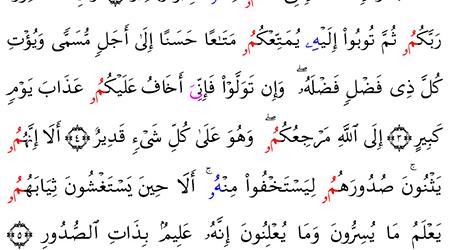 رَبَّكُمُۥ ثُمَّ تُوبُوٓا۟ إِلَيْهِۦ يُمَتِّعْكُمُۥ مَتَٰعًا حَسَنًا إِلَىٰٓ أَجَلٖ مُّسَمّٗى وَيُؤْتِ
كُلَّ ذِى فَضْلٖ فَضْلَهُۥۖ وَإِن تَوَلَّوْا۟ فَإِنِّىَ أَخَافُ عَلَيْكُمُۥ عَذَابَ يَوْمٖ
كَبِيرٍ ۝٣ إِلَى ٱللَّهِ مَرْجِعُكُمُۥۖ وَهُوَ عَلَىٰ كُلِّ شَىْءٖ قَدِيرٌ ۝٤ أَلَآ إِنَّهُمُۥ
يَثْنُونَ صُدُورَهُمُۥ لِيَسْتَخْفُوا۟ مِنْهُۥۚ أَلَا حِينَ يَسْتَغْشُونَ ثِيَابَهُمُۥ
يَعْلَمُ مَا يُسِرُّونَ وَمَا يُعْلِنُونَ إِنَّهُۥ عَلِيمُۢ بِذَاتِ ٱلصُّدُورِ ۝٥